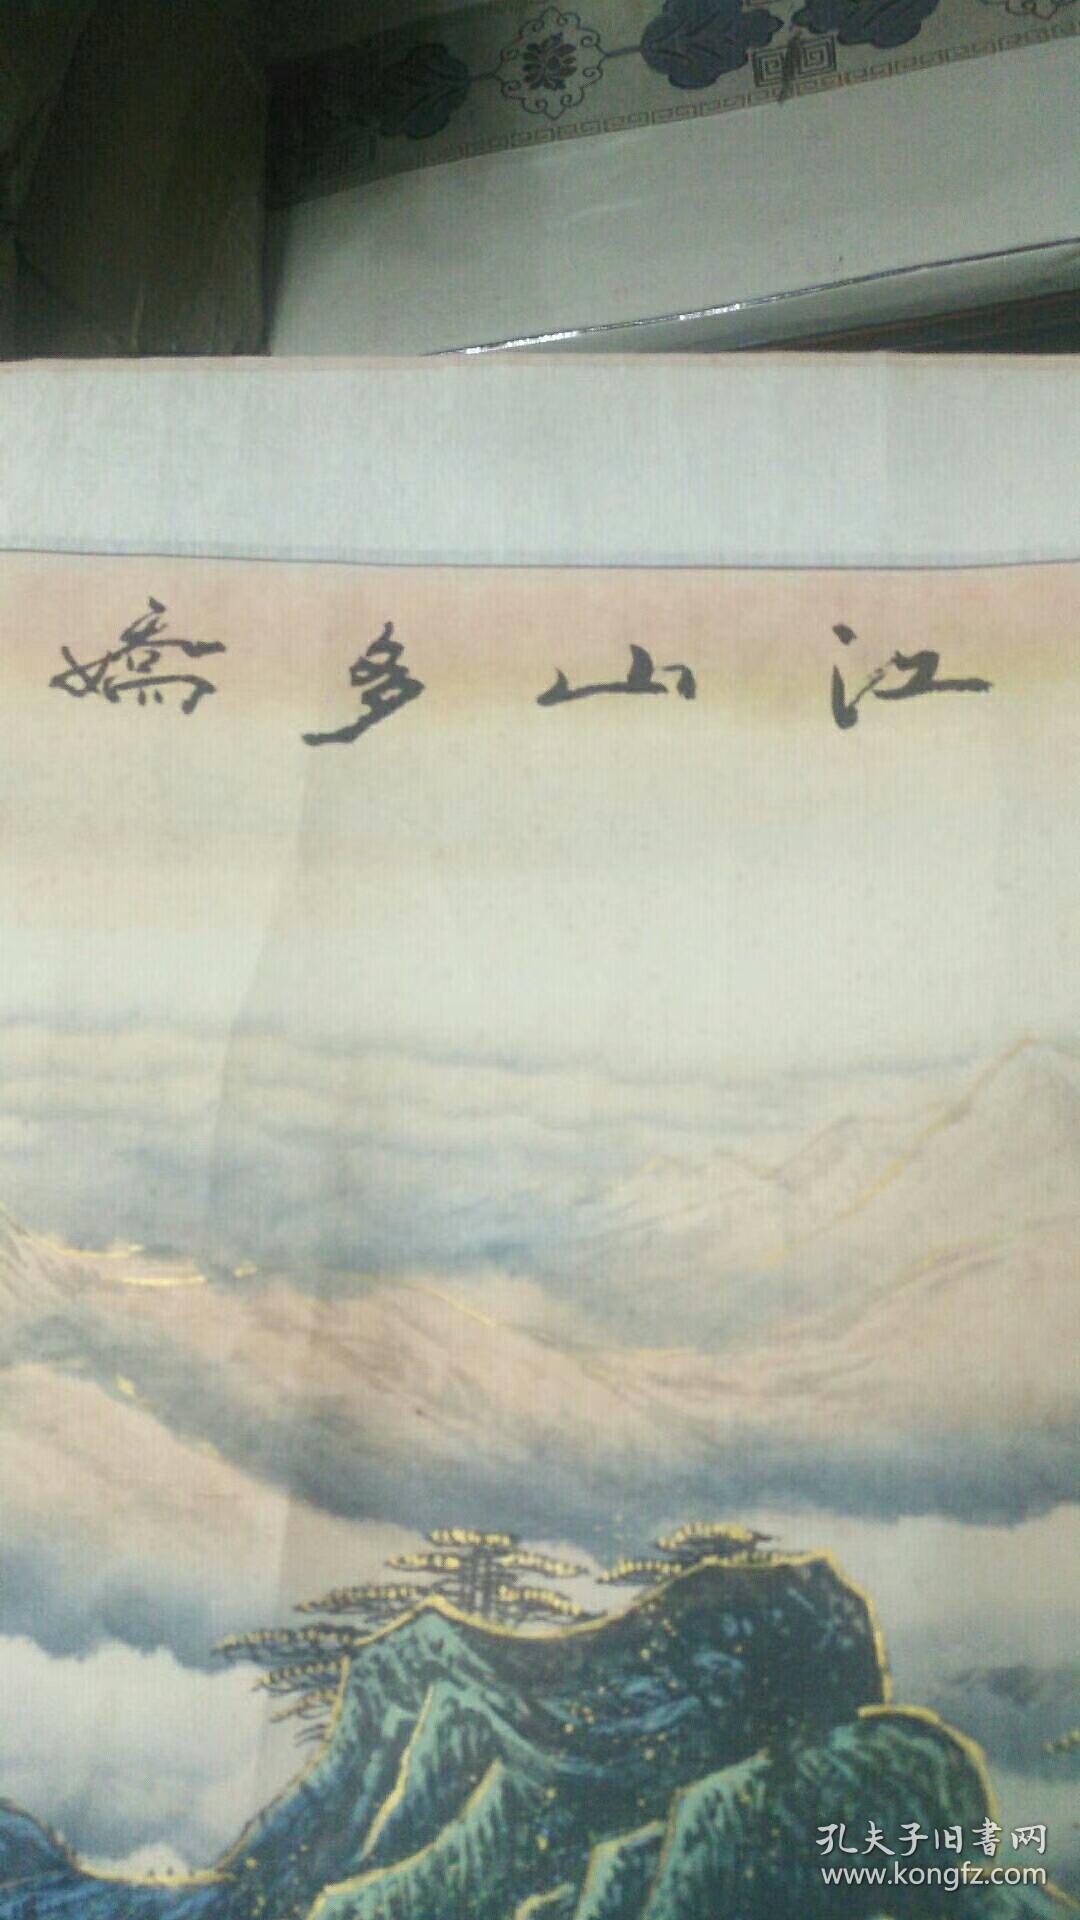 江山多嬌
孔夫子旧書网
www.kongfz.com